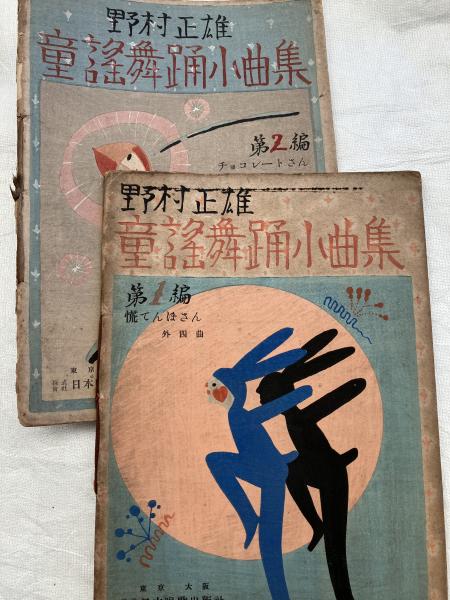 野村正雄
童謡舞踊小曲集
第2編
チョコレートさん
東京
株式会社 日本
野村正雄
童謡舞踊小曲集
第1編
慌てんぼさん
外四曲
東京 大阪